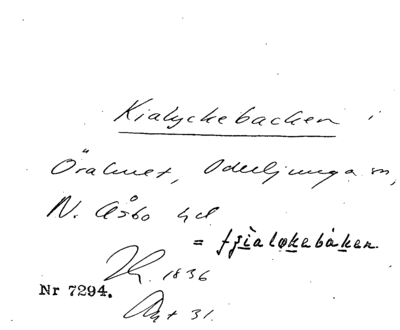 Kialyckebacken i
Öraholmet, Oderljunga sn,
N. Åsbo hd
= fʒialøkebàken.
1836
Nr 7294.
Akt 31.